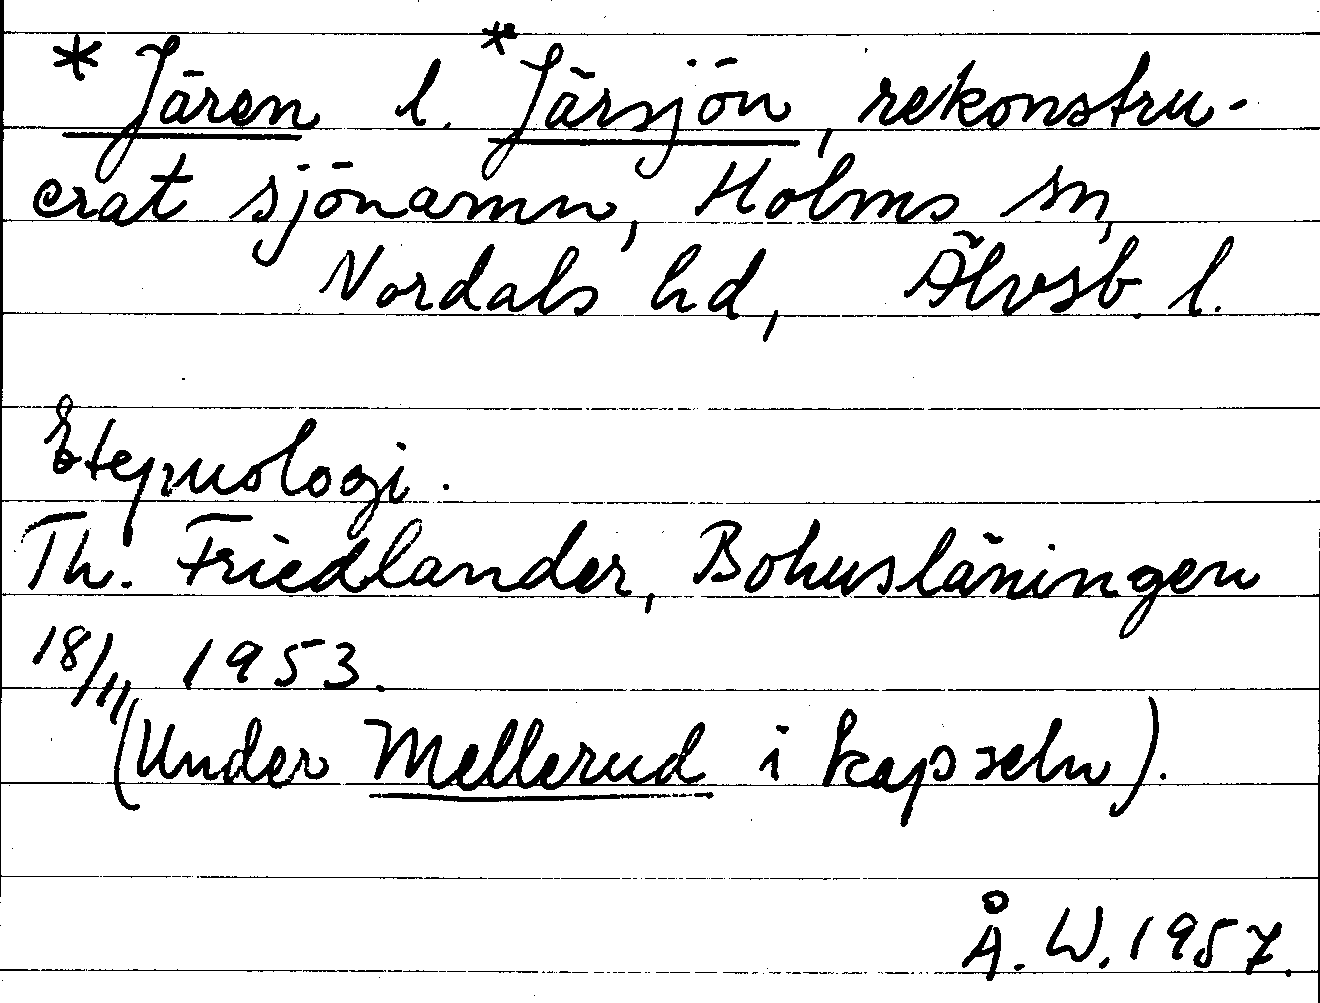 * Jären l. * Järsjön, rekonstru-
erat sjönamn, Holms sn,
Nordals hd, Älvsb. l.
Etymologi.
Th. Friedlander, Bohusläningen
18/11 1953.
(Under Mellerud i kapseln).
Å. W. 1957.